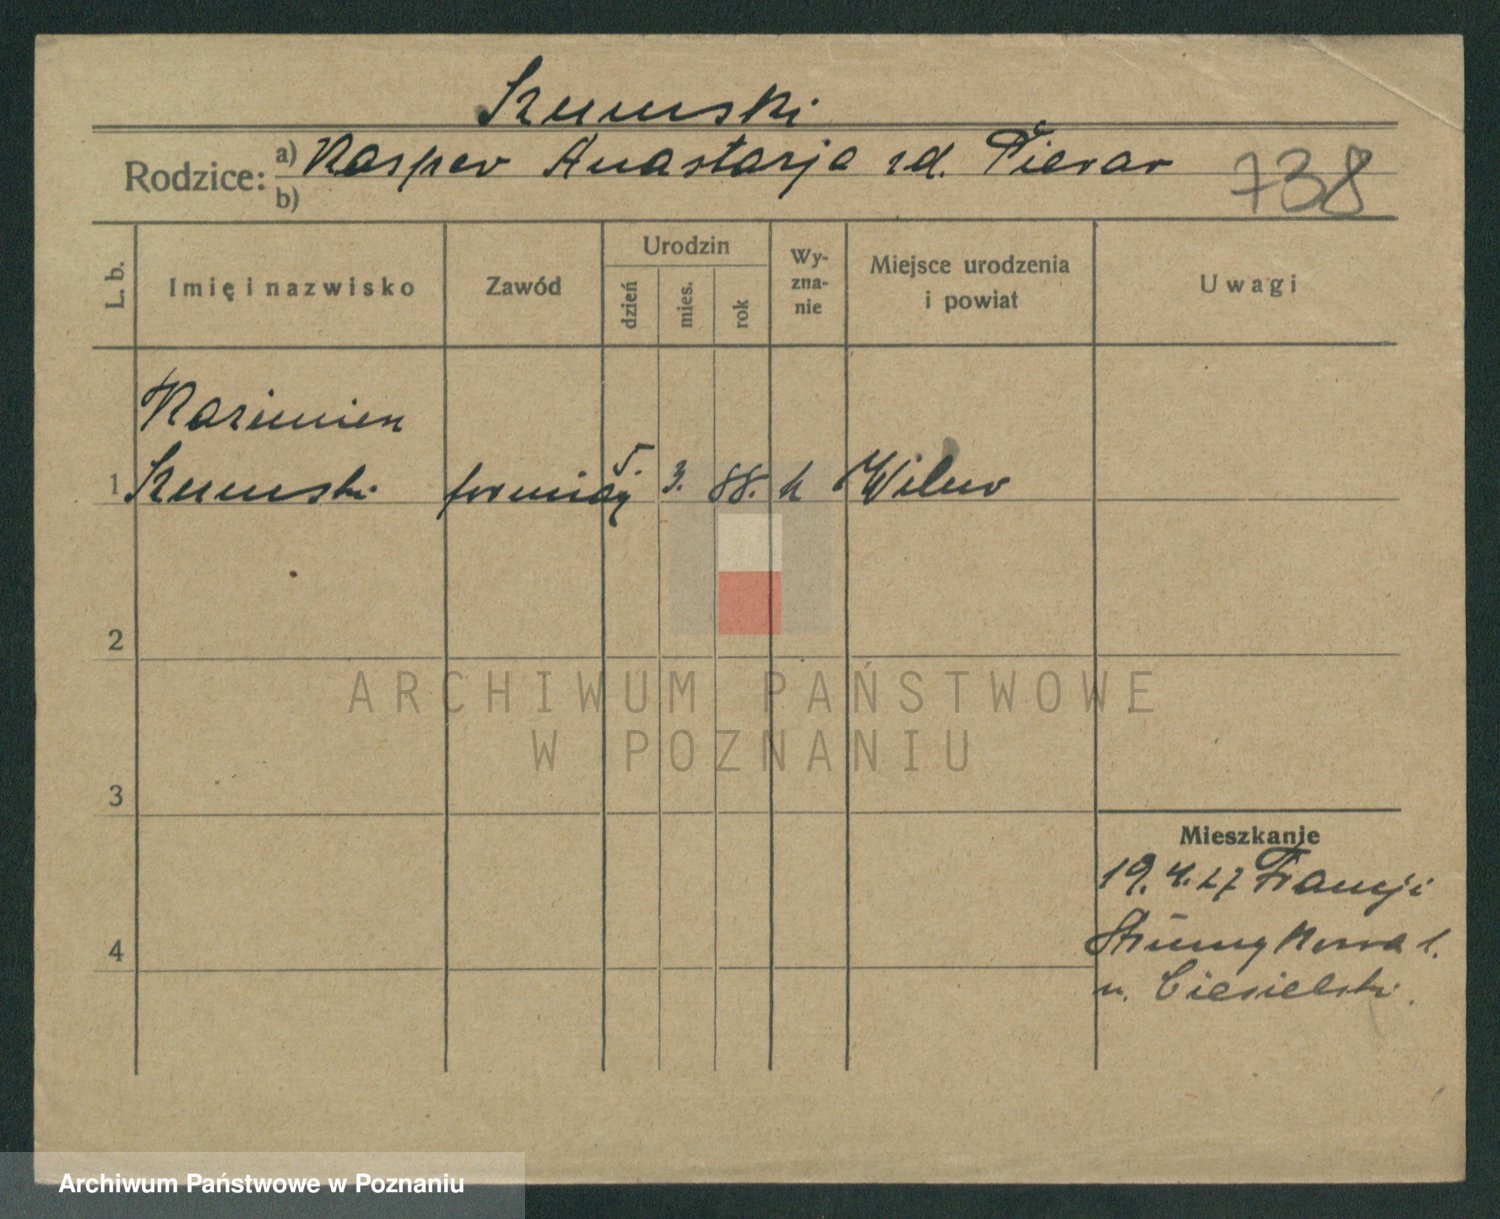 Szumski
Rodzice: a) Kasper Anastazja zd. Pierar
b)
738
L. b.
Imię i nazwisko
Zawód
Urodzin
dzień
mies.
rok
Wy-
zna-
nie
Miejsce urodzenia
i powiat
Uwagi
Kazimierz
1 Szumski fornirz 5. 3. 88. k Wilno
2
ARCHIWUM PAŃSTWOWE
W POZNANIU
3
Mieszkanie
19. 4. 27 Francji
4
u. Ciesielski.
Archiwum Państwowe w Poznaniu